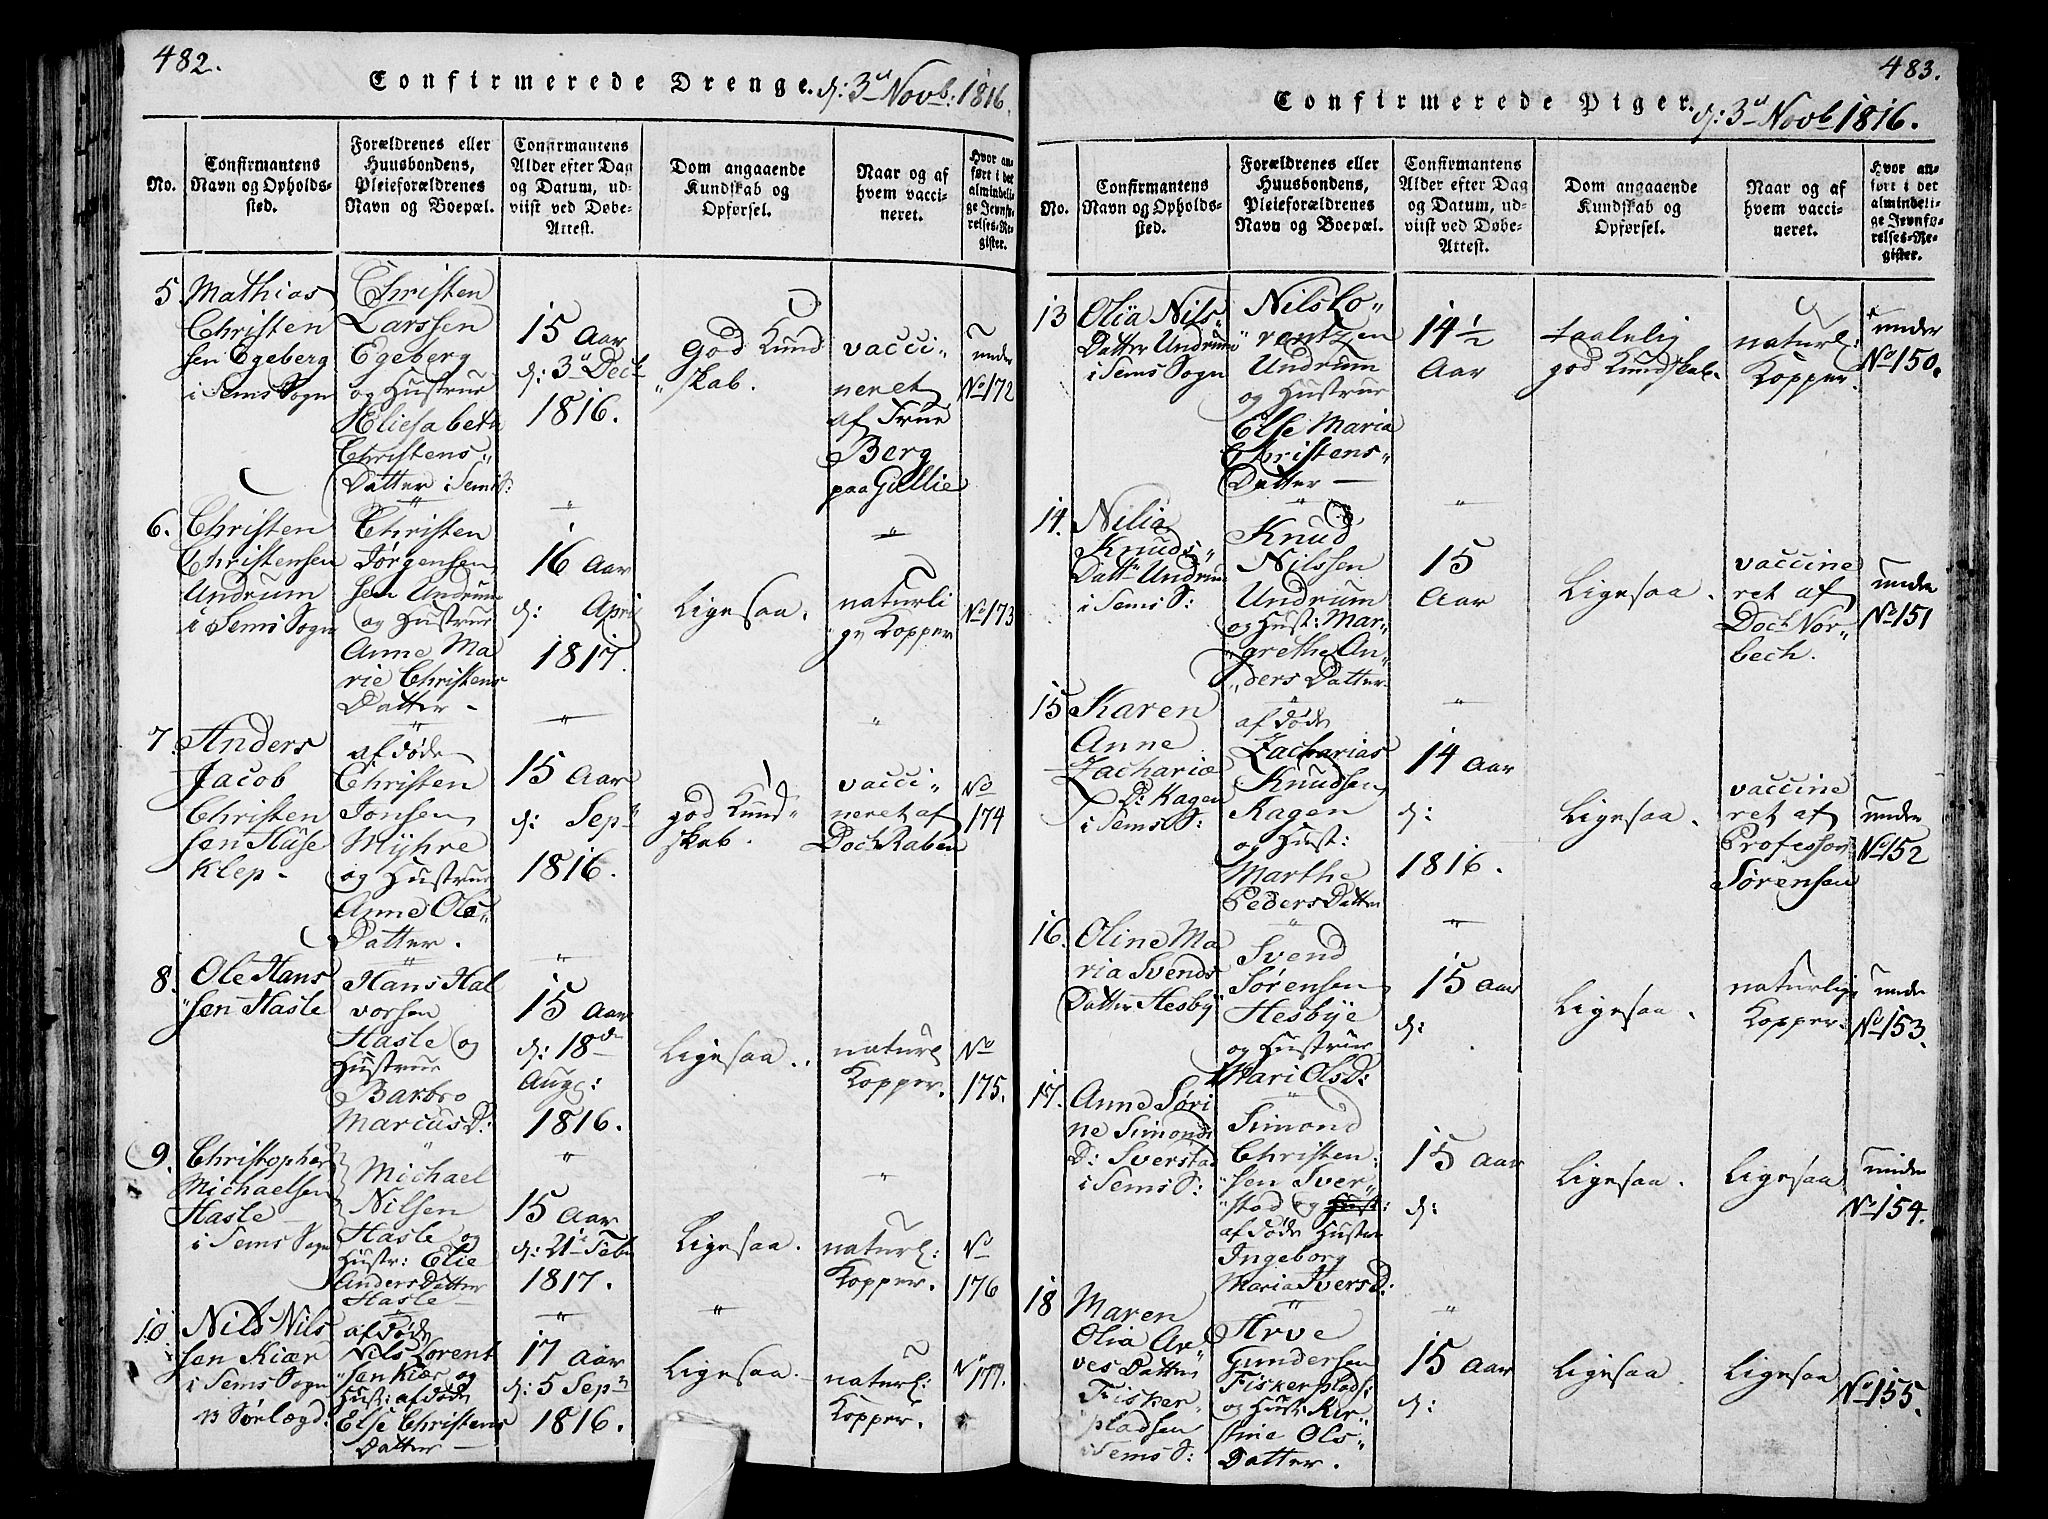 482.
Confirmerede Drenge. d: 3d Novb: 1816.
No.
Confirmantens
Navn og Opholds-
sted.
Forældrenes eller
Huusbondens,
Pleieforældrenes
Navn og Boepæl.
Confirmantens
Alder efter Dag
og Datum, ud-
viist ved Døbe-
Attest.
Dom angaaende
Kundskab og
Opførsel.
Naar og af
hvem vacci-
neret.
Hvor an-
ført i det
almindeli-
ge Jevnfø-
relses-Re-
gister.
5
Mathias
Christen
sen Egeberg
i Sems Sogn
Christen
Larssen
Egeberg
og Hustrue
Eliesabeth
Christens"
Datter i Sem S:
15 Aar
d: 3de Decb
1816.
God Kund
"skab.
vacci"
neret
af Frue
Berg
paa Gullie
under
No 172
6.
Christen
Christensen
Undrum
i Sems Sogn
Christen
Jørgensen
sen Undrum
og Hustrue
Anne Ma
rie Christens
Datter -
16 Aar
d: April
1817.
Ligesaa.
naturli
"ge Kopper
No 173
7.
Anders
Jacob
Christen
sen Hase
Klep -
afdøde
Christen
Jonsen
Myhre
og Hustrue
Anne Ols"
Datter.
15 Aar
d: Sepr
1816.
god Kund"
skab.
vacci"
neret af
Doct Raben
No
174
8.
Ole Hans
"sen Hasle
Hans Hal
vorsen
Hasle og
Hustrue
Barbro
Marcus D:
15 Aar
d: 18de
Aug:
1816.
Ligesaa.
naturl
Kopper.
No
175.
9.
Christopher
Michaelsen
Hasle
i Sems Sogn
Michael
Nilsen
Hasle og
Hustr: Elie
Anders Datter
Hasle -
15 Aar
d: 21de Febr
1817.
Ligesaa.
naturl:
Kopper.
No
176
10
Nils Nils
sen Kiær
i Sems Sogn
13 Sørlægd:
afdøde
Nils Lorent
"sen Kiær og
Hust: afdøde
Else Christens
Datter -
17 Aar
d: 5 Sepr
1816.
Ligesaa.
naturl:
Kopper.
No 177.
483.
Confirmerede Piger. d: 3d Novb 1816.
No.
Confirmantens
Navn og Opholds-
sted.
Forældrenes eller
Huusbondens,
Pleieforældrenes
Navn og Boepæl.
Confirmantens
Alder efter Dag
og Datum, ud-
viist ved Døbe-
Attest.
Dom angaaende
Kundskab og
Opførsel.
Naar og af
hvem vacci-
neret.
Hvor an-
ført i det
almindeli-
ge Jevnfø-
relses-Re-
gister.
13
Olia Nils"
Datter Undrum
i Sems Sogn
Nils Lo"
"rentzen
Undrum
og Hustrue
Else Maria
Christens"
Datter -
14 1/2
Aar
taalelig
god Kundskab.
naturl:
Kopper.
under
No 150.
14.
Nilia
Knuds"
Dattr Undrum
i Sems S:
Knud
Nilssen
Undrum
og Hust: Mar"
"grethe An"
"ders Datter
15
Aar
Ligesaa.
vaccine
ret af
Doct Nor"
bech.
under
No 151
15
Karen
Anne
Zachariæ
D: Kagen
i Sems S:
afdøde
Zacharias
Knudsen
Kagen
og Hust:
Marthe
Peders Datter
14 Aar
d:
1816.
Ligesaa.
vaccine
ret af
Professor
Sørensen
under
No 152
16.
Oline Ma
ria Svends
Datter Hesby
Svend
Sørensen
Hesbye
og Hustrue
Mari Ols D:
15 Aar
d:
Ligesaa.
naturlige
Kopper.
under
No 153.
17.
Anne Søri
ne Simonds
D: Sverstad
i Sems S:
Simond
Christen:
"sen Sver"
"stad og Hust:
afdøde Hustru
Ingeborg
Maria Ivers D:
15 Aar
d:
Ligesaa.
Ligesaa
under
No 154.
18
Maren
Olia Ar"
ves Datter
Fisker"
pladsen
i Sems S:
Arve
Gundersen
Fiskerplads:
og Hust: Kir"
stine Ols"
Datter.
15 Aar
d:
Ligesaa.
Ligesaa
No 155.